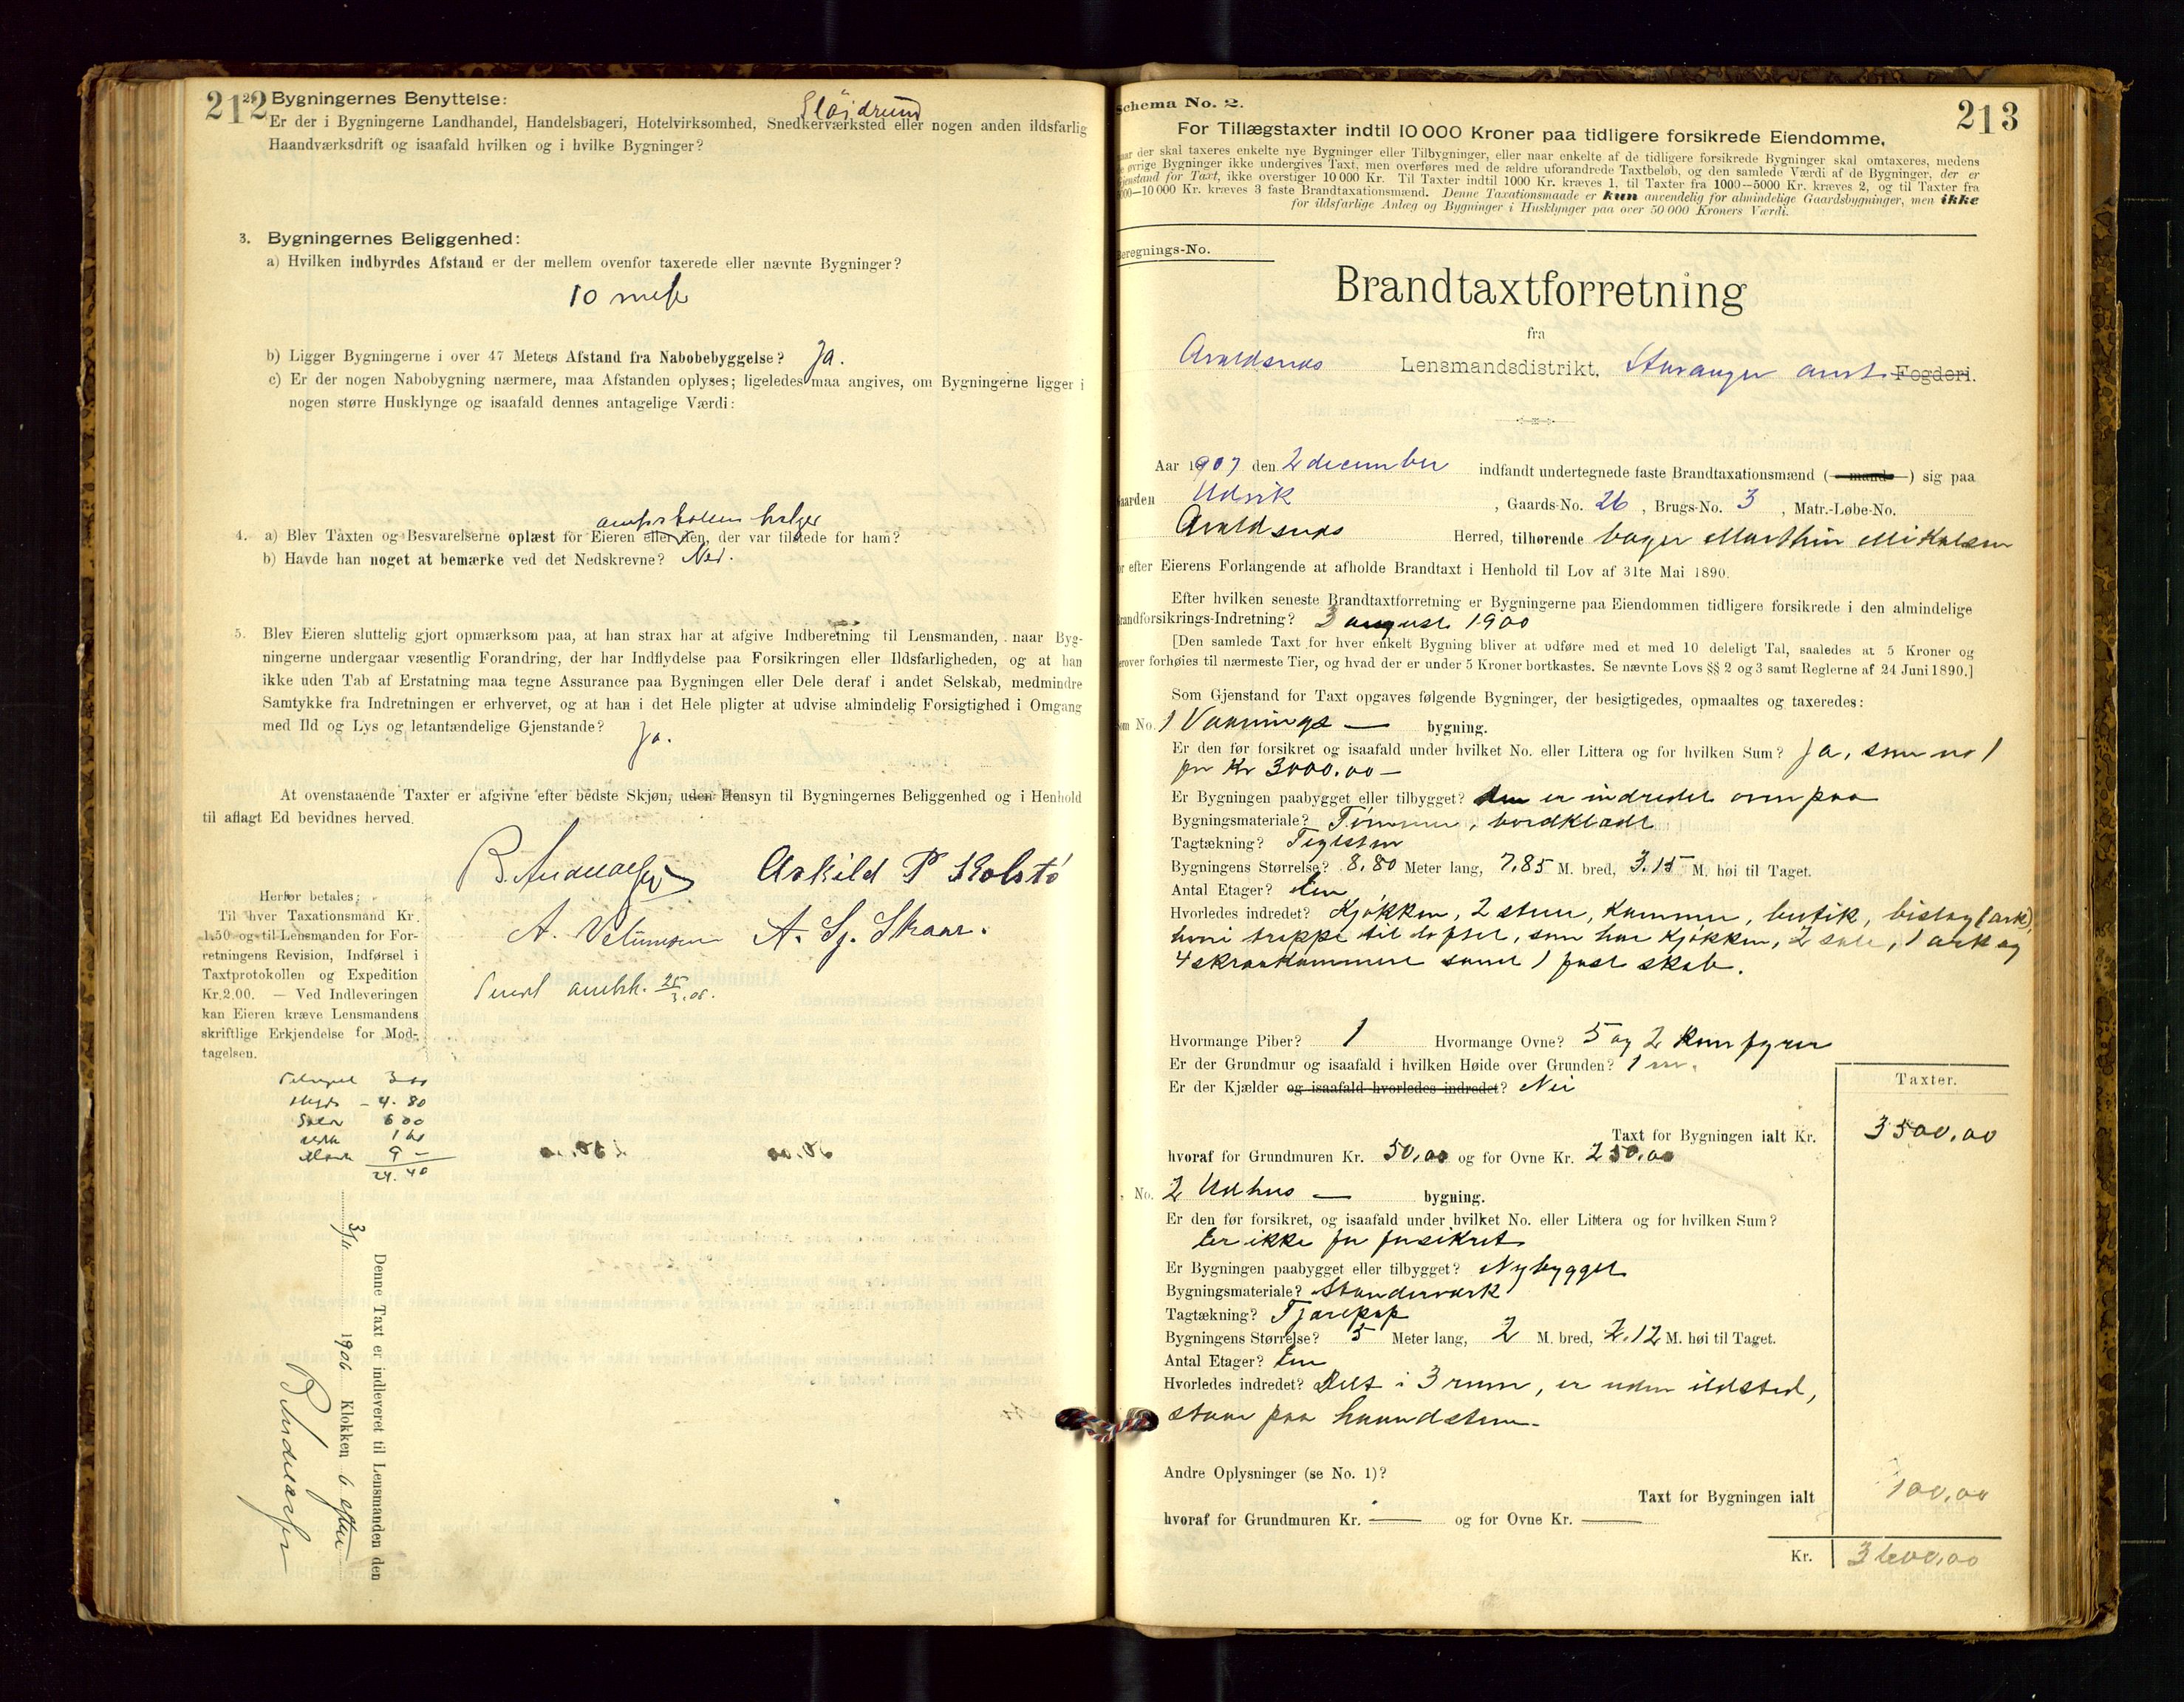 212
2. Bygningernes Benyttelse:
Sløidrum
Er der i Bygningerne Landhandel, Handelsbageri, Hotelvirksomhed, Snedkerværksted eller nogen anden ildsfarlig
Haandværksdrift og isaafald hvilken og i hvilke Bygninger?
3. Bygningernes Beliggenhed:
a) Hvilken indbyrdes Afstand er der mellem ovenfor taxerede eller nævnte Bygninger?
10 meter
b) Ligger Bygningerne i over 47 Meters Afstand fra Nabobebyggelse? Ja.
c) Er der nogen Nabobygning nærmere, maa Afstanden oplyses; ligeledes maa angives, om Bygningerne ligger i
nogen større Husklynge og isaafald dennes antagelige Værdi:
amtsskolens
4. a) Blev Taxten og Besvarelserne oplæst for Eieren eller den, der var tilstede for ham?
b) Havde han noget at bemærke ved det Nedskrevne? Nei.
5. Blev Eieren sluttelig gjort opmærksom paa, at han strax har at afgive Indberetning til Lensmanden, naar Byg-
ningerne undergaar væsentlig Forandring, der har Indflydelse paa Forsikringen eller Ildsfarligheden, og at han
ikke uden Tab af Erstatning maa tegne Assurance paa Bygningen eller Dele deraf i andet Selskab, medmindre
Samtykke fra Indretningen er erhvervet, og at han i det Hele pligter at udvise almindelig Forsigtighed i Omgang
med Ild og Lys og letantændelige Gjenstande? Ja.
At ovenstaaende Taxter er afgivne efter bedste Skjøn, uden Hensyn til Bygningernes Beliggenhed og i Henhold
til aflagt Ed bevidnes herved.
Askild P Kolstö
A. Sj. Skaar.
Herfor betales:
Til hver Taxationsmand Kr.
1.50 og til Lensmanden for For-
retningens Revision, Indførsel i
Taxtprotokollen og Expedition
Kr. 2.00. — Ved Indleveringen
kan Eieren kræve Lensmandens
skriftlige Erkjendelse for Mod-
tagelsen.
300
4.80
600
9 –
24.40
Denne Taxt er indleveret til Lensmanden den
3/11 1906 Klokken 6 efter
213
Schema No. 2.
For Tillægstaxter indtil 10 000 Kroner paa tidligere forsikrede Eiendomme,
naar der skal taxeres enkelte nye Bygninger eller Tilbygninger, eller naar enkelte af de tidligere forsikrede Bygninger skal omtaxeres, medens
de øvrige Bygninger ikke undergives Taxt, men overføres med de ældre uforandrede Taxtbeløb, og den samlede Værdi af de Bygninger, der er
Gjenstand for Taxt, ikke overstiger 10 000 Kr. Til Taxter indtil 1000 Kr. kræves 1, til Taxter fra 1000—5000 Kr. kræves 2, og til Taxter fra
5000—10 000 Kr. kræves 3 faste Brandtaxationsmænd. Denne Taxationsmaade er kun anvendelig for almindelige Gaardsbygninger, men ikke
for ildsfarlige Anlæg og Bygninger i Husklynger paa over 50 000 Kroners Værdi.
Beregnings-No.
Brandtaxtforretning
fra
Avaldsnes Lensmandsdistrikt, Stavanger amt Fogderi.
Aar 1907 den 2 december indfandt undertegnede faste Brandtaxationsmænd (—mand—) sig paa
Gaarden Udvik, Gaards-No. 26, Brugs-No. 3, Matr.-Løbe-No.
Avaldsnes Herred, tilhørende bager Marthin Mikalsen
for efter Eierens Forlangende at afholde Brandtaxt i Henhold til Lov af 31te Mai 1890.
Efter hvilken seneste Brandtaxtforretning er Bygningerne paa Eiendommen tidligere forsikrede i den almindelige
Brandforsikrings-Indretning? 3 august 1900
[Den samlede Taxt for hver enkelt Bygning bliver at udføre med et med 10 deleligt Tal, saaledes at 5 Kroner og
derover forhøies til nærmeste Tier, og hvad der er under 5 Kroner bortkastes. Se nævnte Lovs §§ 2 og 3 samt Reglerne af 24 Juni 1890.]
Som Gjenstand for Taxt opgaves følgende Bygninger, der besigtigedes, opmaaltes og taxeredes:
Som No. 1 Vaanings — bygning.
Er den før forsikret og isaafald under hvilket No. eller Littera og for hvilken Sum? Ja, som no 1
for Kr 3000.00 –
Er Bygningen paabygget eller tilbygget? den er indredet ovenpaa
Bygningsmateriale? Tømmer, bordklædt
Tagtækning? Teglsten
Bygningens Størrelse? 8,80 Meter lang, 7,85 M. bred, 3,15 M. høi til Taget.
Antal Etager? En
Hvorledes indredet? Kjøkken, 2 stuer, kammer, butik, bislag (ark),
hvori trappe til loftet, som har kjøkken, 2 sale, 1 ark og
4 skraakammere samt 1 fast skab.
Hvormange Piber? 1 Hvormange Ovne? 5 og 2 komfyrer
Er der Grundmur og isaafald i hvilken Høide over Grunden? 1 m.
Er der Kjælder og isaafald hvorledes indredet? Nei
Taxter.
Taxt for Bygningen ialt Kr. 3500,00
hvoraf for Grundmuren Kr. 50,00 og for Ovne Kr. 250,00
„ No. 2 Udhus — bygning.
Er den før forsikret, og isaafald under hvilket No. eller Littera og for hvilken Sum?
Er ikke før forsikret
Er Bygningen paabygget eller tilbygget? Nybygget
Bygningsmateriale? Standerværk
Tagtækning? Tjærepap
Bygningens Størrelse? 5 Meter lang, 2 M. bred, 2,12 M. høi til Taget.
Antal Etager? En
Hvorledes indredet? Delt i 3 rum, er uden ildsted,
staar paa haandsten.
Andre Oplysninger (se No. 1)?
Taxt for Bygningen ialt 100,00
hvoraf for Grundmuren Kr. — og for Ovne Kr. —
Kr. 3600,00